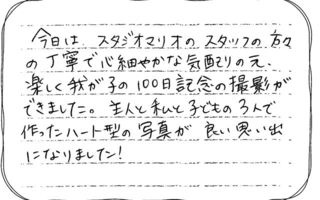 今日は スタジオマリオの スタッフの 方々
の 丁寧で 心細やかな 気配りの元、
楽しく 我が子の 100日記念の 撮影が
できました。主人と私と子どもの3人で
作ったハート型の 写真が 良い思い出
になりました!